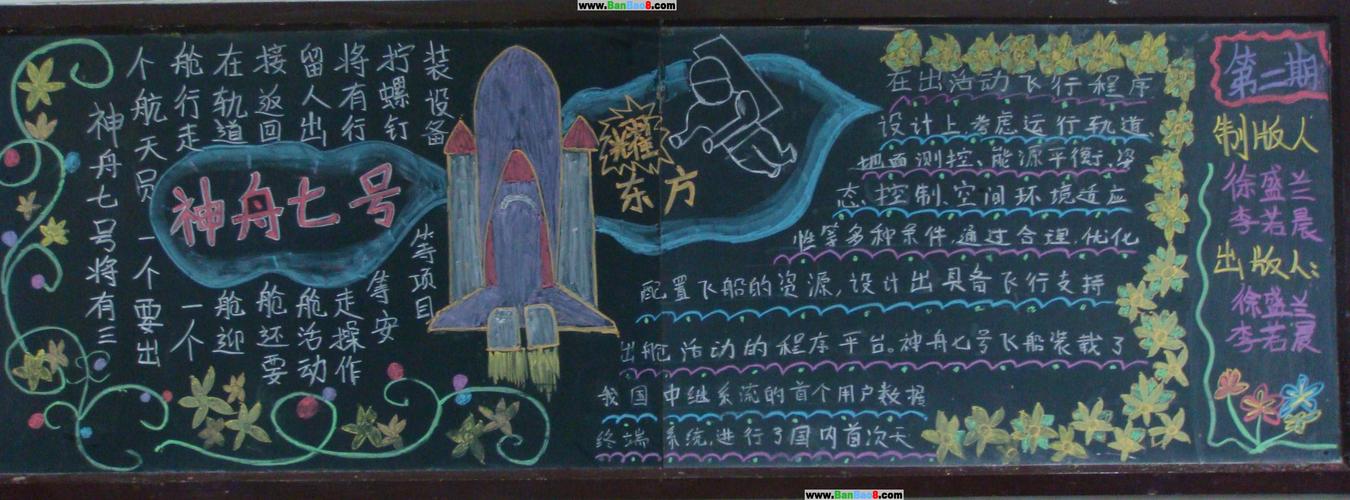 www.BanBao8.com
神舟七号将有三
个航天员一个要出
舱行走一个
在轨道舱迎
接返回舱还要
留人出舱活动
将有行走操作
拧螺钉等安
装设备等项目
神舟七号
耀
东方
在出活动飞行程序
设计上考虑运行轨道、
地面测控、能源平衡、姿
态、控制、空间环境适应
性等多种条件,通过合理、优化
配置飞船的资源,设计出具备飞行支持
出舱活动的程序平台。神舟七号飞船装载了
我国中继系流的首个用户数据
终端系统,进行了国内首次天
第二期
制版人
徐盛兰
李若晨
出版人:
徐盛兰
李若晨
www.BanBao8.com